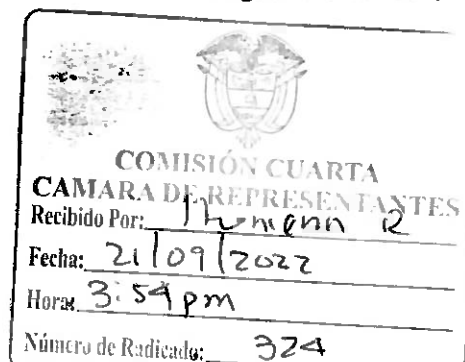 COMISIÓN CUARTA
CAMARA DE REPRESENTANTES
Recibido Por: R
Fecha: 21/09/2022
Hora: 3:54 pm
Número de Radicado: 324